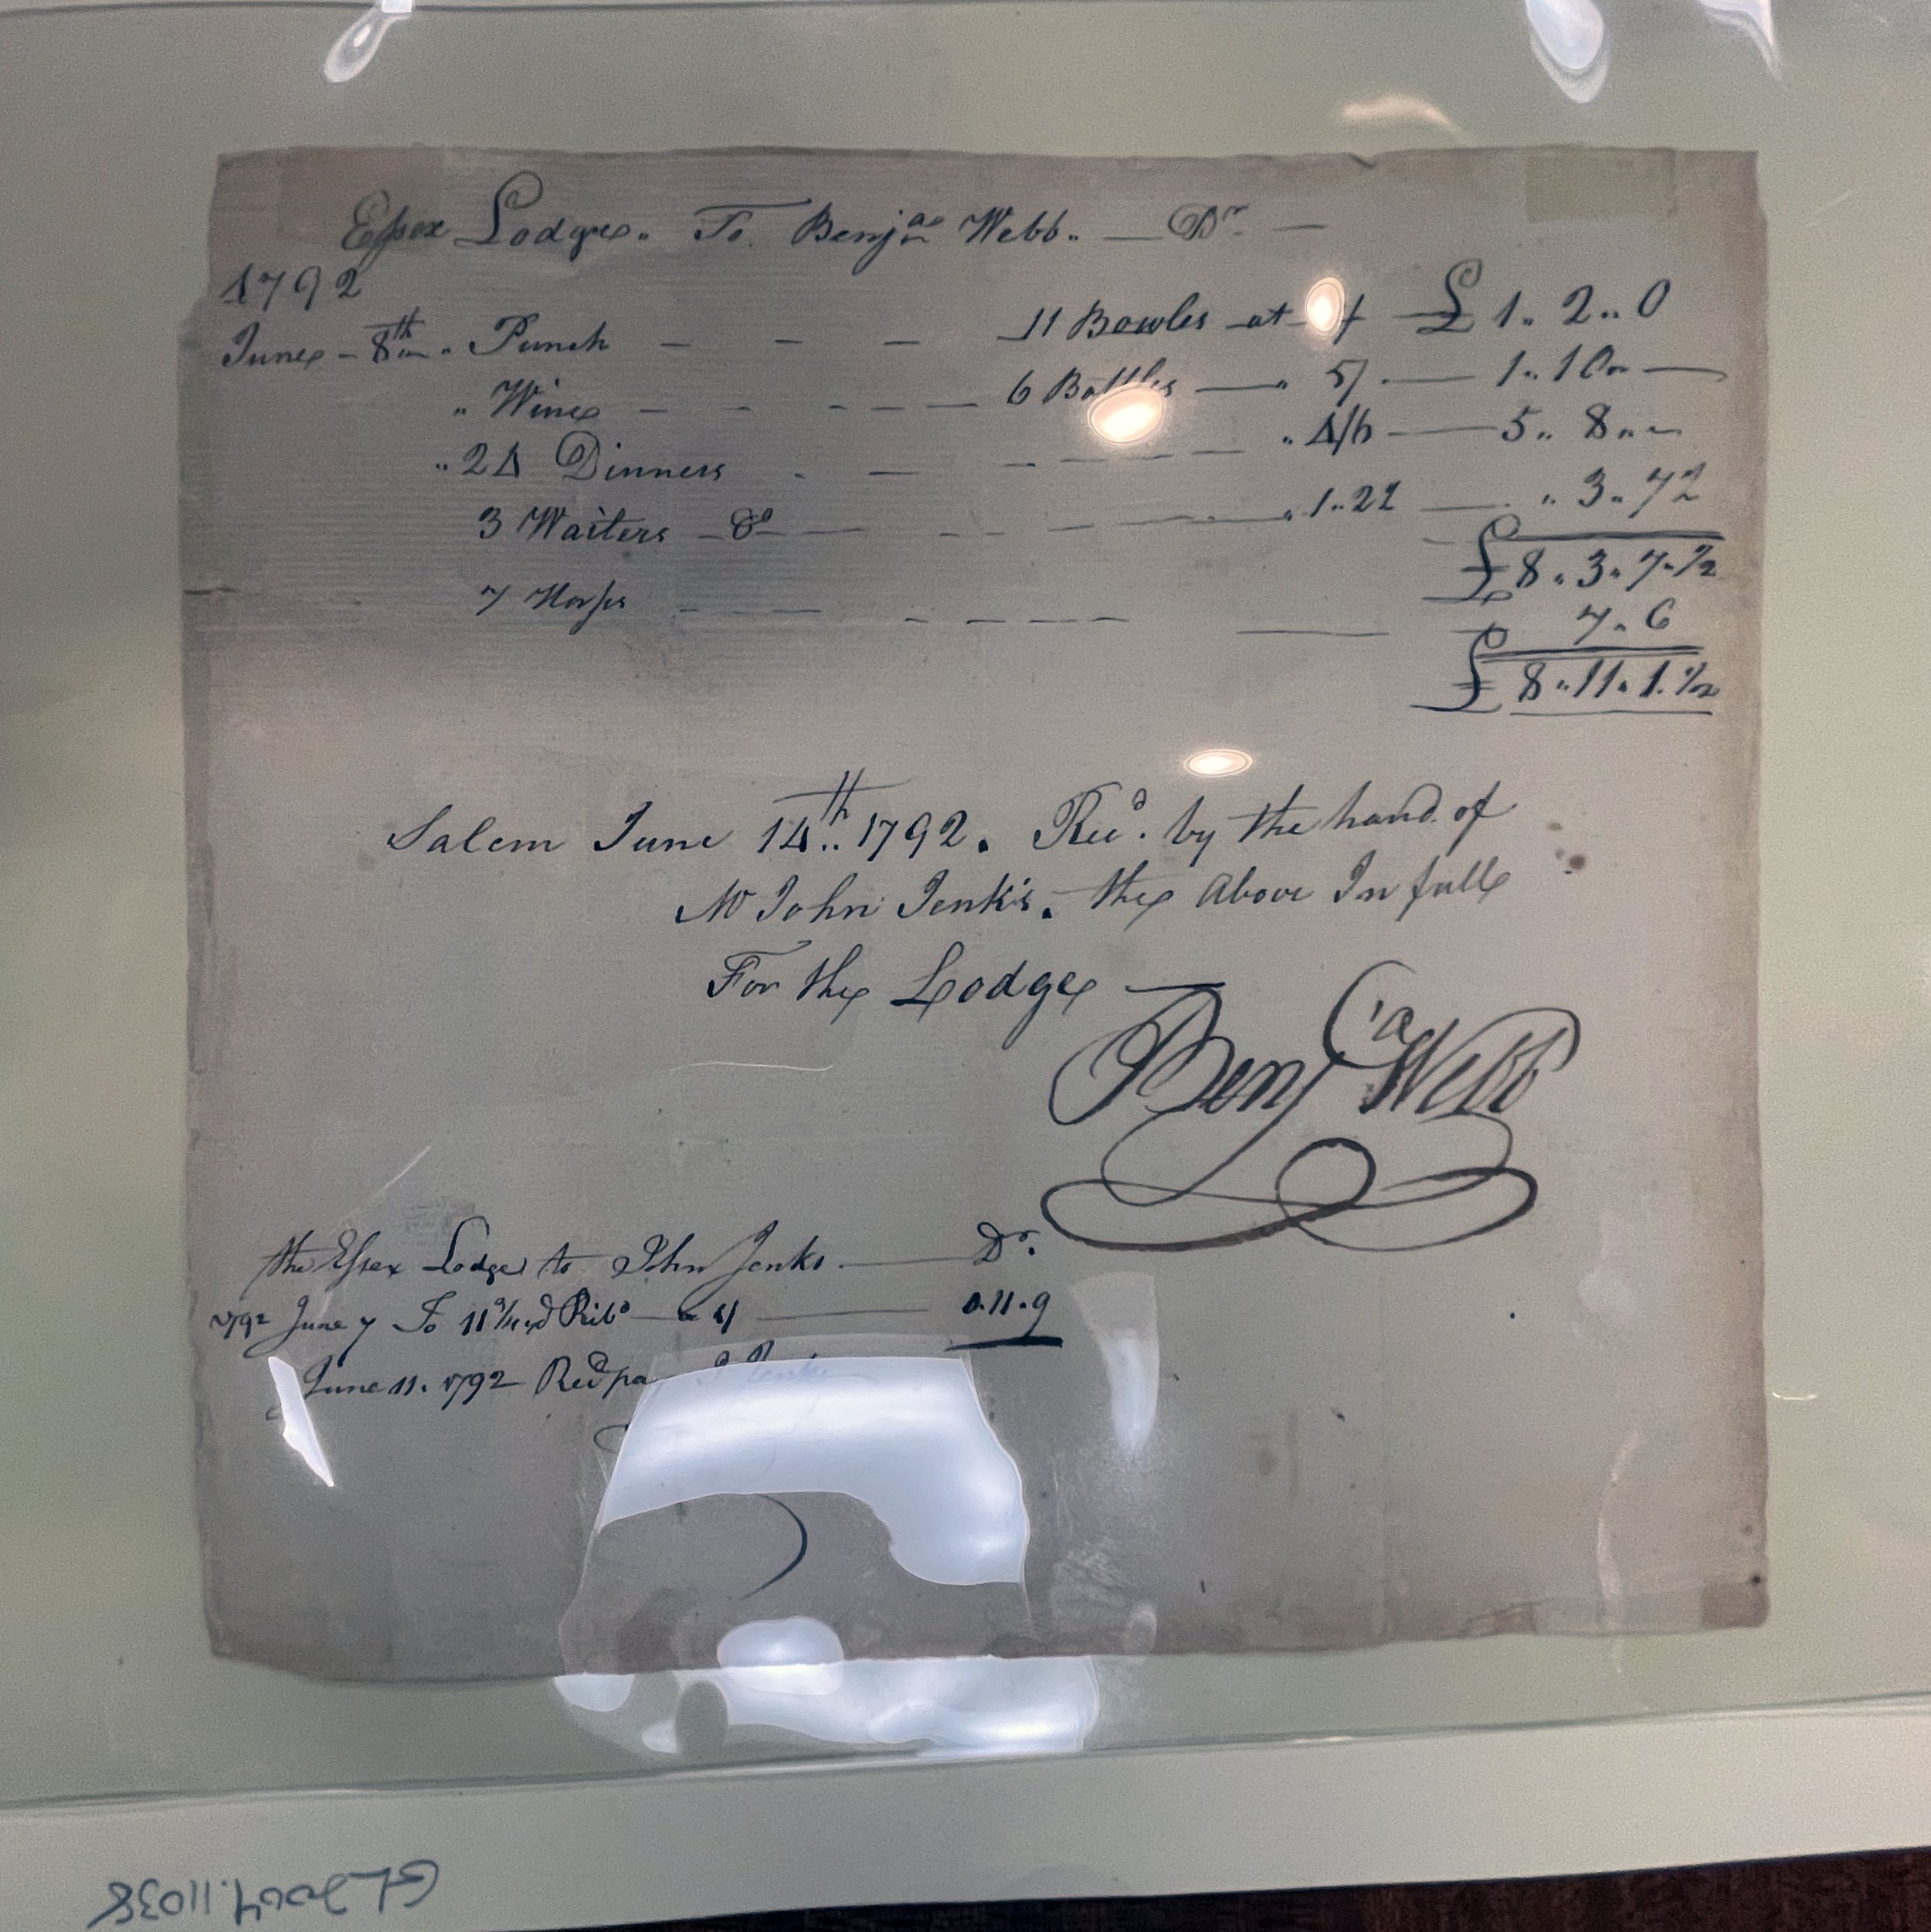 Essex Lodge. To Benjᵃ Webb. — Dʳ. —
1792
June - 8th. Punch - - - 11 Bowles at £ 1.. 2.. 0
" Wine - - - - - - 6 Bottles — " 5/. — 1.. 10.. —
" 24 Dinners - - - - - - - - " 4/6 — 5.. 8.. ~
3 Waiters - — - - - - - " 1..2½ — " 3.. 7½
£ 8. 3. 7. ½
7 Horses - - - - - - - — 7.. 6
£ 8.. 11. 1. ½
Salem June 14th.. 1792. Recᵈ. by the hand of
Mr John Jenks. the Above In full
For the Lodge —
Benjᵃ Webb
the Essex Lodge to John Jenks. — Dʳ.
1792 June 7 To 11¾ yd Ribⁿ — a 1/ — 0.11.9
June 11. 1792 Recd pay
GL2004.11038